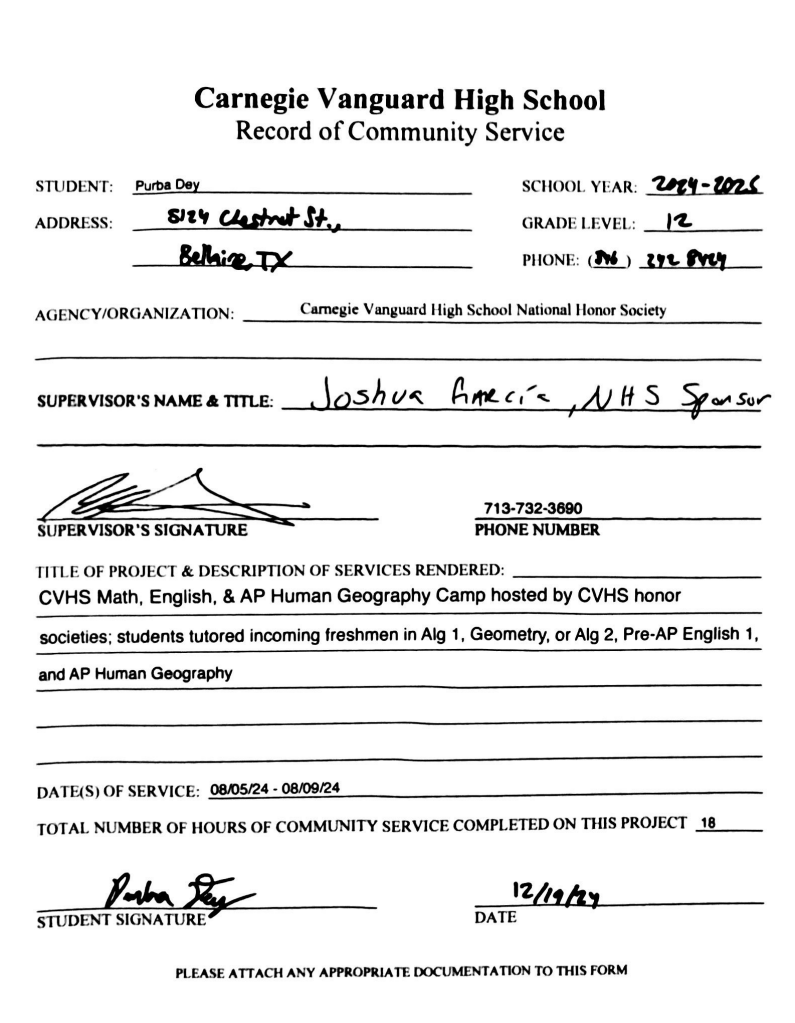 Carnegie Vanguard High School
Record of Community Service
STUDENT: Purba Dey SCHOOL YEAR: 2024-2025
ADDRESS: 5124 Chestnut St., GRADE LEVEL: 12
Bellaire, TX PHONE: ( )
AGENCY/ORGANIZATION: Carnegie Vanguard High School National Honor Society
SUPERVISOR'S NAME & TITLE: Joshua García, NHS Sponsor
713-732-3690
SUPERVISOR'S SIGNATURE PHONE NUMBER
TITLE OF PROJECT & DESCRIPTION OF SERVICES RENDERED:
CVHS Math, English, & AP Human Geography Camp hosted by CVHS honor
societies; students tutored incoming freshmen in Alg 1, Geometry, or Alg 2, Pre-AP English 1,
and AP Human Geography
DATE(S) OF SERVICE: 08/05/24 - 08/09/24
TOTAL NUMBER OF HOURS OF COMMUNITY SERVICE COMPLETED ON THIS PROJECT 18
Purba Dey 12/19/24
STUDENT SIGNATURE DATE
PLEASE ATTACH ANY APPROPRIATE DOCUMENTATION TO THIS FORM